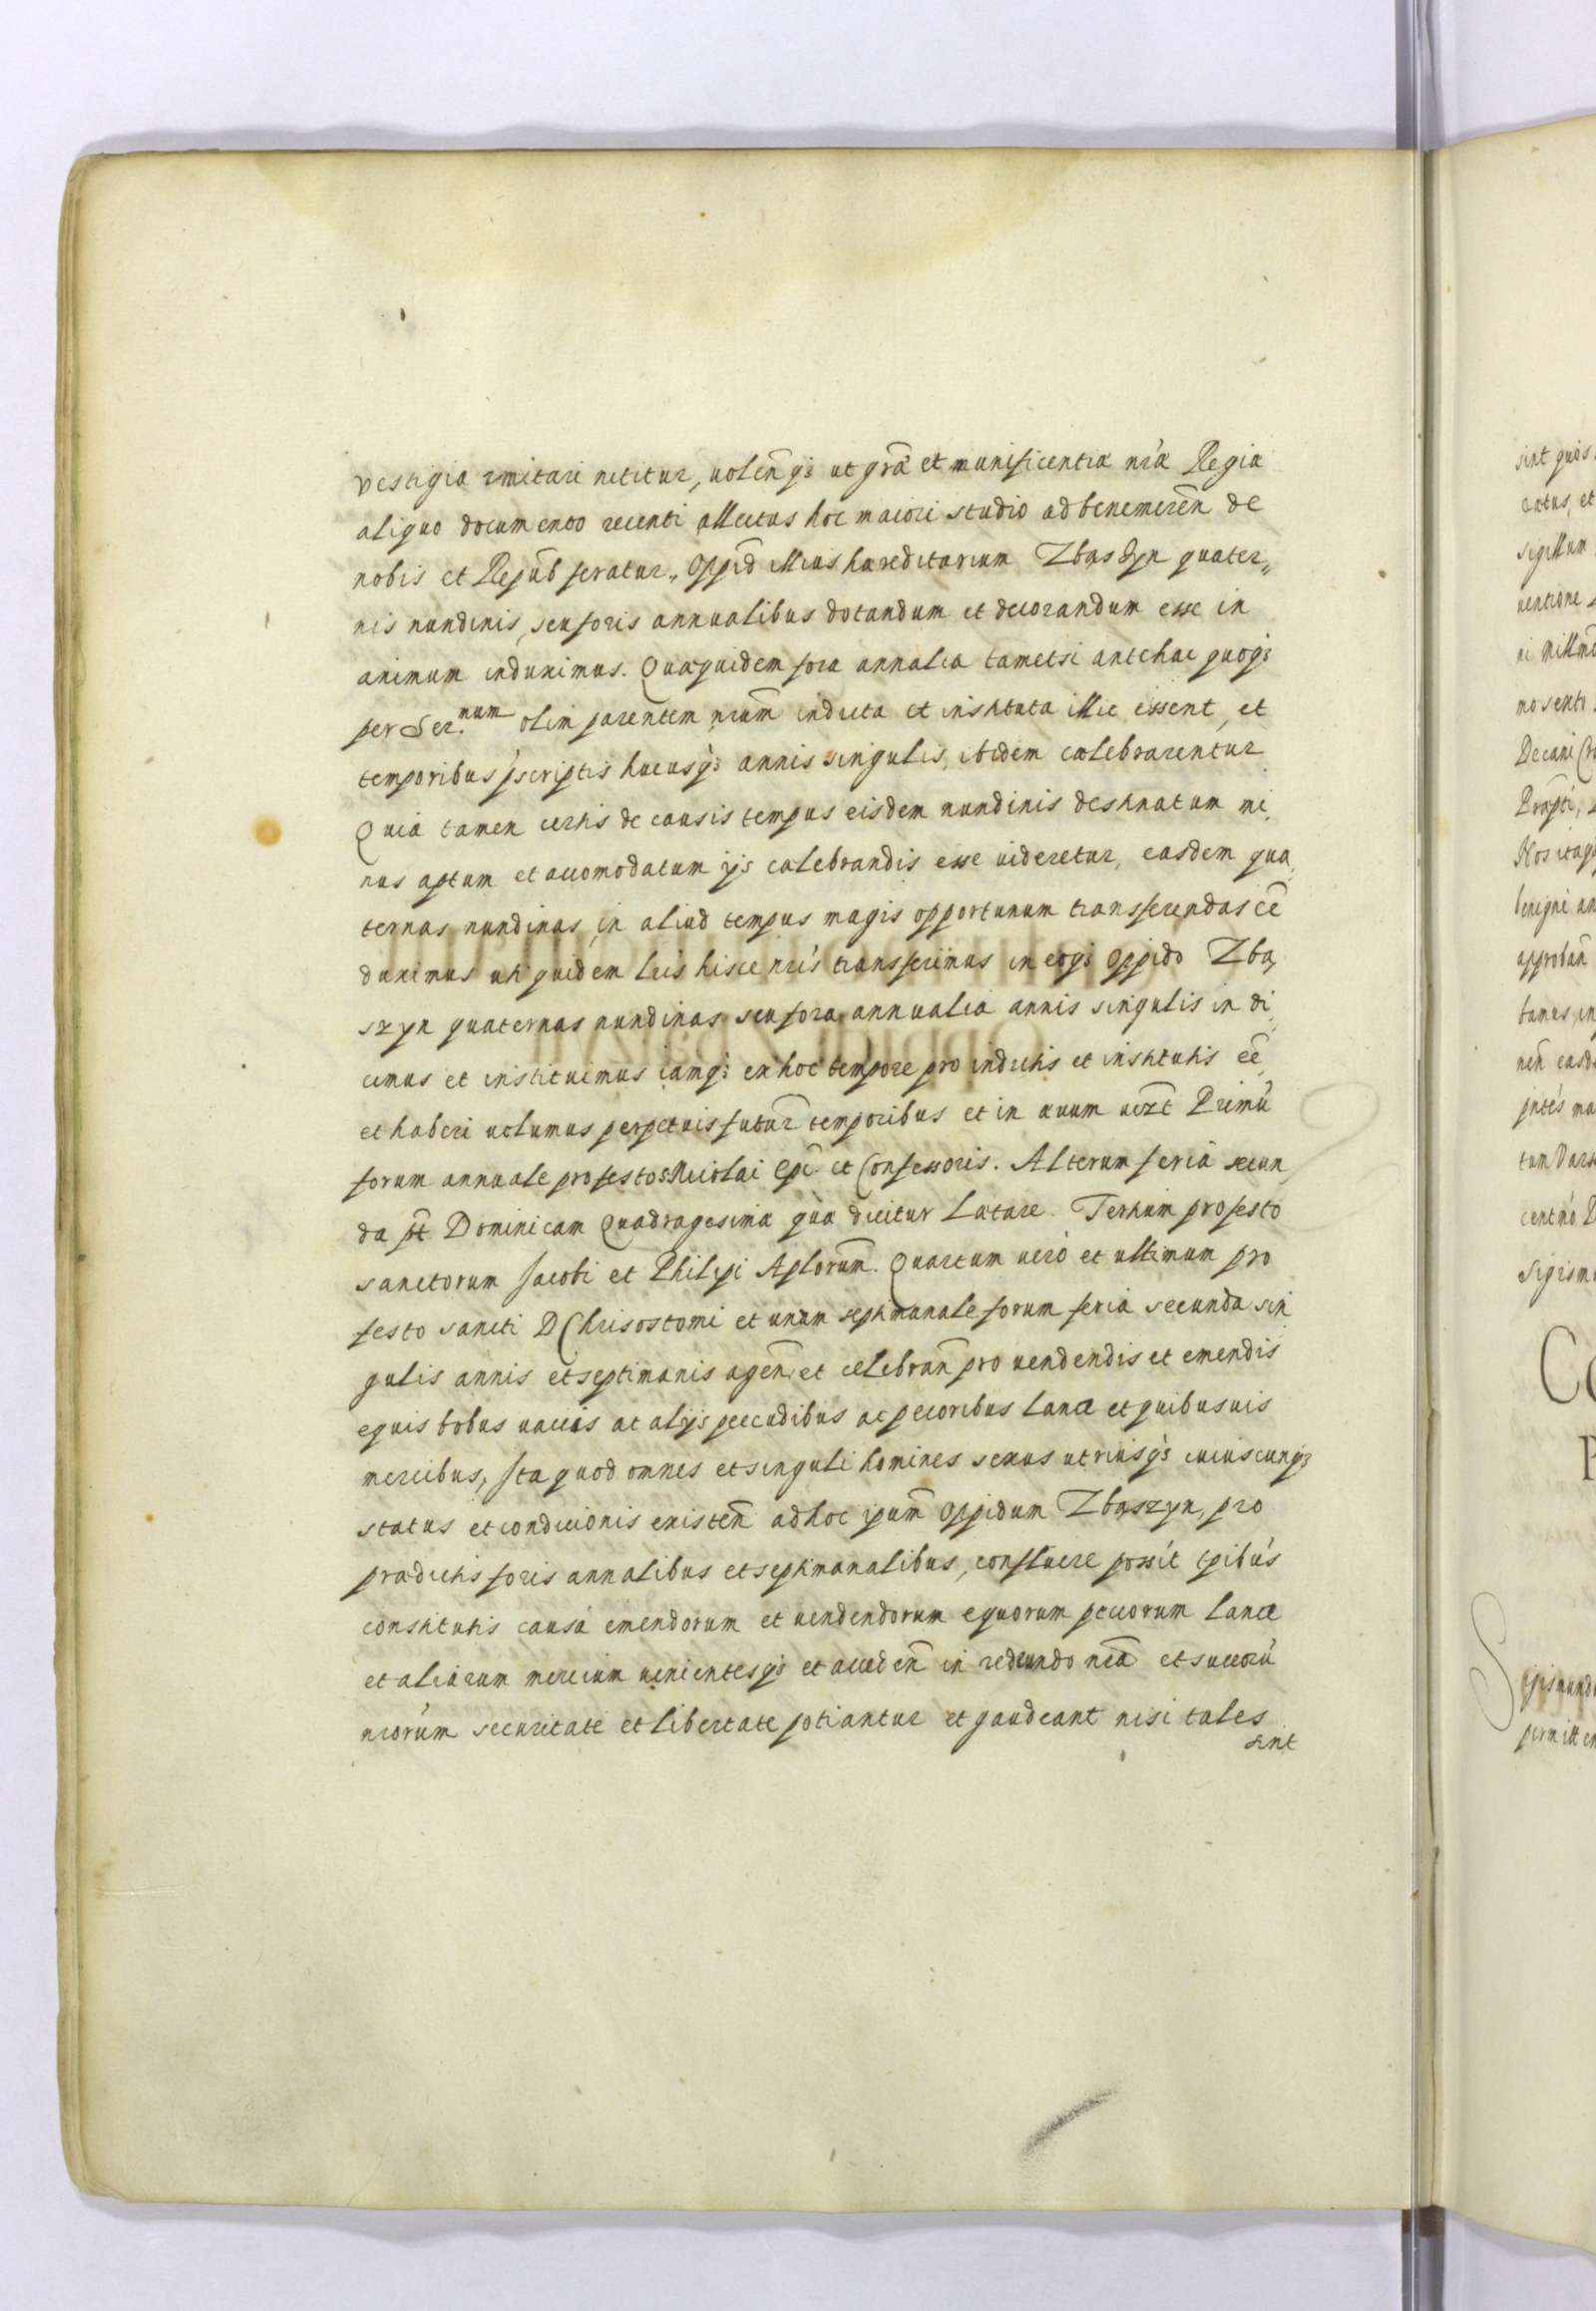 vestigia imitari nititur, uolen̄ qꝫ ut gr̄a et munificentia nr̄a Regia
aliquo documento recenti allectus hoc maiori studio ad benemeren̄ de
nobis et Repub̄ feratur,, Oppid̄ illius hæreditarium Zbąszyn quater„
nis nundinis, seu foris annualibus dotandum et decorandum esse in
animum induximus. Quæquidem fora annalia tametsi antehac quoqꝫ
per Ser.num olim parentem nrum̄ inducta et instituta illic essent, et
temporibus pscriptis hucusqꝫ annis singulis, ibidem cælebrarentur
Quia tamen certis de causis tempus eisdem nundinis destinatum mi,
nus aptum et accomodatum ijs cælebrandis esse uideretur, easdem qua,
ternas nundinas in aliud tempus magis opportunum transferendas cē
duximus uti quidem lris hisce nris transferimus in eoqꝫ Oppido Zbą
szyn quaternas nundinas seu fora annualia annis singulis in di,
cimus et instituimus iamqꝫ ex hoc tempore pro inductis et institutis eē,
et haberi uolumus perpetuis futur̄ temporibus et in æuum uerz̄t Primū
forum annuale pro festo S Nicolai Epī et Confessoris. Alterum feria secun,
da pt̄ Dominicam Quadragesimæ quæ dicitur Lætare. Tertium pro festo
sanctorum Jacobi et Philipi Aplorum̄. Quartum uero et ultimum pro
festo sancti D Chrisostomi et unum septimanale forum feria secunda sin
gulis annis et septimanis agen̄ et celebran̄ pro uendendis et emendis
equis bobus uaccis ac alijs pecudibus ac pecoribus lanæ et quibusuis
mercibus, Ita quod omnes et singuli homines sexus utriusqꝫ cuiuscunqꝫ
status et condicionis existen̄ ad hoc ipum̄ Oppidum Zbąszyn, pro
prædictis foris annalibus et septimanalibus, confluere possit tpibus
constitutis causa emendorum et uendendorum equorum peccorum lanæ
et aliarum mercium uenientesqꝫ et acceden̄ in redeundo nrā et succorū
nrorum securitate et libertate potiantur et gaudeant nisi tales
sint